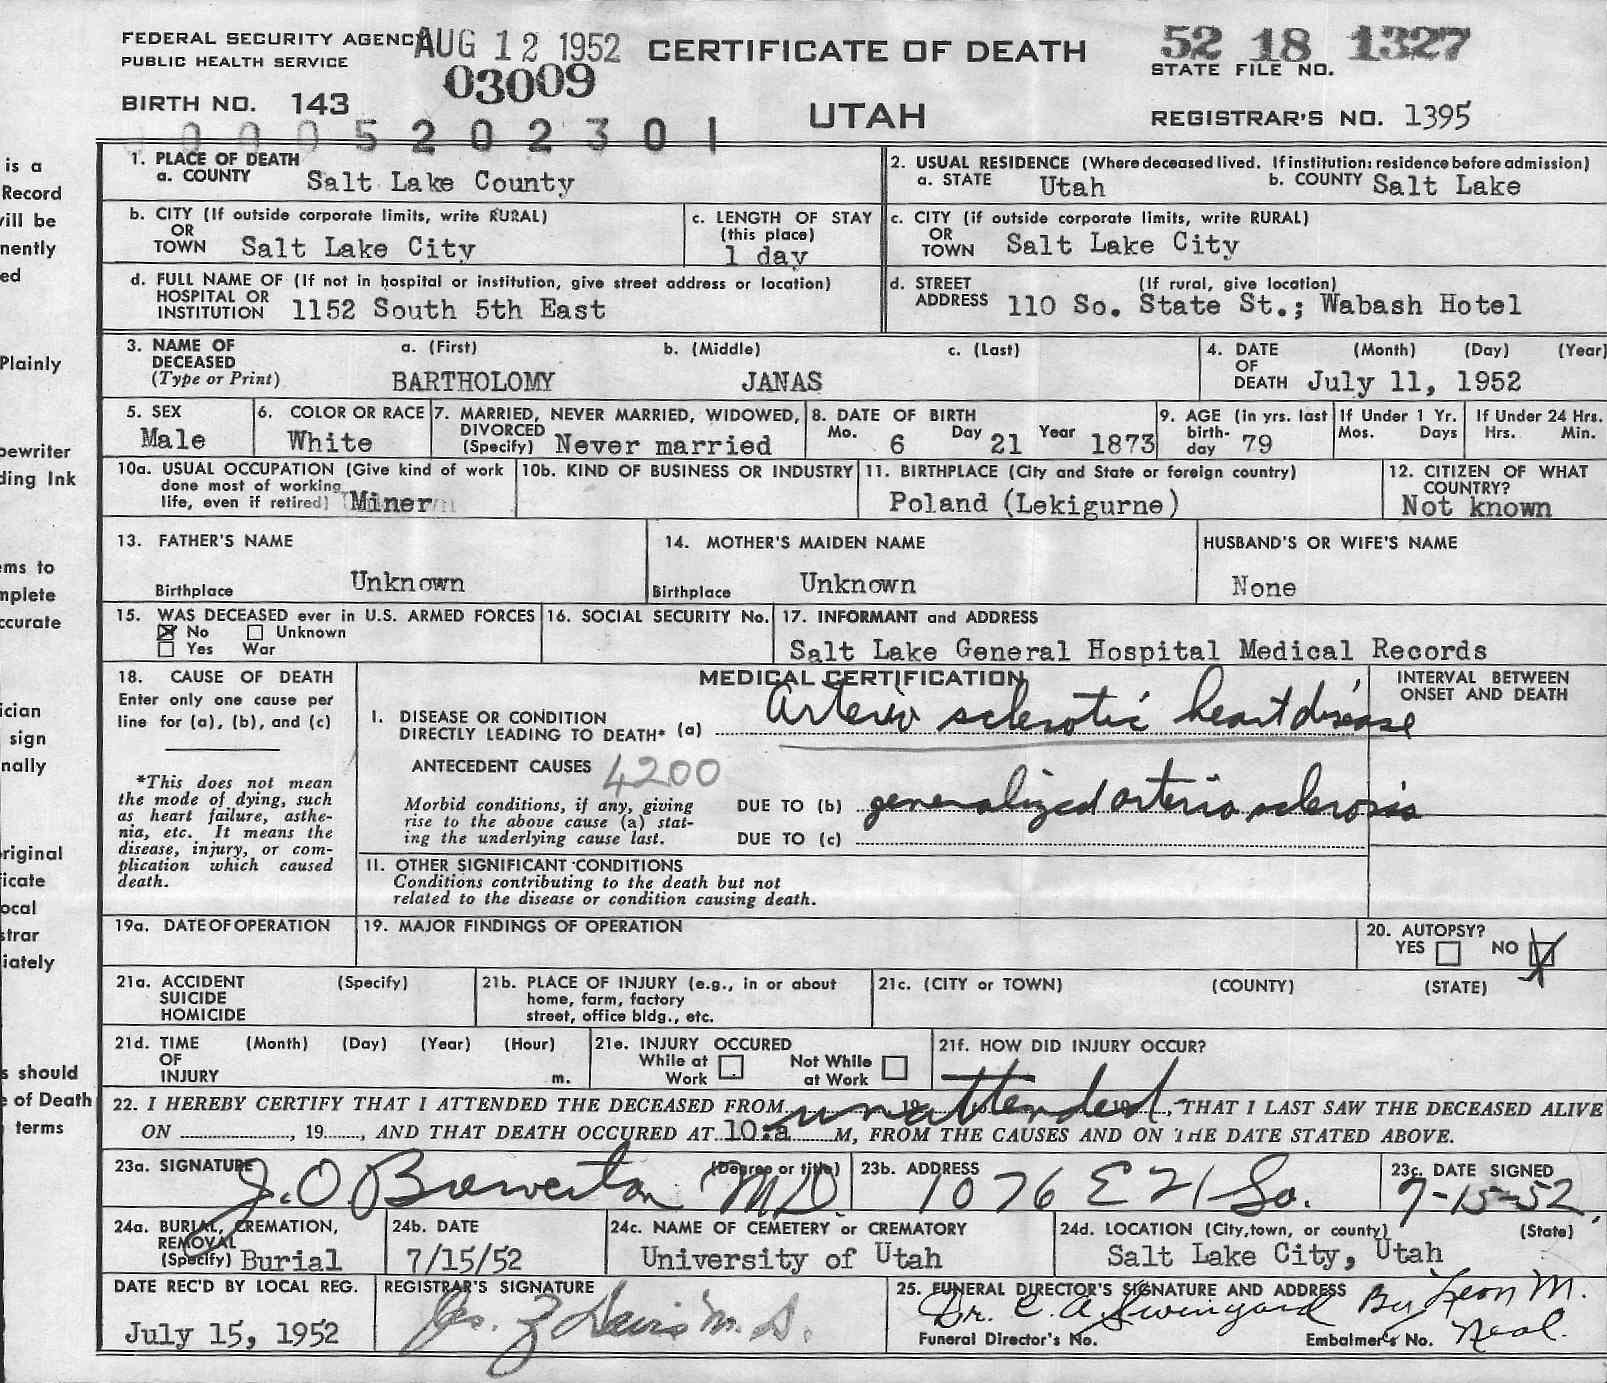 FEDERAL SECURITY AGENCY AUG 12 1952 CERTIFICATE OF DEATH 52 18 1327
PUBLIC HEALTH SERVICE 03009 STATE FILE NO.
BIRTH NO. 143 UTAH REGISTRAR'S NO. 1395
0005202301
1. PLACE OF DEATH
a. COUNTY Salt Lake County
2. USUAL RESIDENCE (Where deceased lived. If institution: residence before admission)
a. STATE Utah b. COUNTY Salt Lake
b. CITY (If outside corporate limits, write RURAL)
OR
TOWN Salt Lake City
c. LENGTH OF STAY
(this place)
1 day
c. CITY (if outside corporate limits, write RURAL)
OR
TOWN Salt Lake City
d. FULL NAME OF (If not in hospital or institution, give street address or location)
HOSPITAL OR
INSTITUTION 1152 South 5th East
d. STREET (If rural, give location)
ADDRESS 110 So. State St.; Wabash Hotel
3. NAME OF a. (First) b. (Middle) c. (Last)
DECEASED
(Type or Print) BARTHOLOMY JANAS
4. DATE (Month) (Day) (Year)
OF
DEATH July 11, 1952
5. SEX
Male
6. COLOR OR RACE
White
7. MARRIED, NEVER MARRIED, WIDOWED,
DIVORCED
(Specify) Never married
8. DATE OF BIRTH
Mo. 6 Day 21 Year 1873
9. AGE (in yrs. last
birth-
day 79
If Under 1 Yr.
Mos. Days
If Under 24 Hrs.
Hrs. Min.
10a. USUAL OCCUPATION (Give kind of work
done most of working
life, even if retired) Miner
10b. KIND OF BUSINESS OR INDUSTRY
11. BIRTHPLACE (City and State or foreign country)
Poland (Lekigurne)
12. CITIZEN OF WHAT
COUNTRY?
Not known
13. FATHER'S NAME
Birthplace Unknown
14. MOTHER'S MAIDEN NAME
Birthplace Unknown
HUSBAND'S OR WIFE'S NAME
None
15. WAS DECEASED ever in U.S. ARMED FORCES
No Unknown
Yes War
16. SOCIAL SECURITY No.
17. INFORMANT and ADDRESS
Salt Lake General Hospital Medical Records
18. CAUSE OF DEATH
Enter only one cause per
line for (a), (b), and (c)
*This does not mean
the mode of dying, such
as heart failure, asthe-
nia, etc. It means the
disease, injury, or com-
plication which caused
death.
MEDICAL CERTIFICATION
INTERVAL BETWEEN
ONSET AND DEATH
I. DISEASE OR CONDITION
DIRECTLY LEADING TO DEATH* (a) Arterio sclerotic heart disease
ANTECEDENT CAUSES 4200
Morbid conditions, if any, giving
rise to the above cause (a) stat-
ing the underlying cause last.
DUE TO (b) generalized arterio sclerosis
DUE TO (c)
II. OTHER SIGNIFICANT CONDITIONS
Conditions contributing to the death but not
related to the disease or condition causing death.
19a. DATE OF OPERATION
19. MAJOR FINDINGS OF OPERATION
20. AUTOPSY?
YES NO
21a. ACCIDENT (Specify)
SUICIDE
HOMICIDE
21b. PLACE OF INJURY (e.g., in or about
home, farm, factory
street, office bldg., etc.
21c. (CITY or TOWN) (COUNTY) (STATE)
21d. TIME (Month) (Day) (Year) (Hour)
OF
INJURY m.
21e. INJURY OCCURED
While at Not While
Work at Work
21f. HOW DID INJURY OCCUR?
22. I HEREBY CERTIFY THAT I ATTENDED THE DECEASED FROM unattended 19 19, THAT I LAST SAW THE DECEASED ALIVE
ON , 19 , AND THAT DEATH OCCURED AT 10:a M, FROM THE CAUSES AND ON THE DATE STATED ABOVE.
23a. SIGNATURE (Degree or title)
J. O. Bowerton M.D.
23b. ADDRESS
1076 E 21 So.
23c. DATE SIGNED
7-15-52
24a. BURIAL, CREMATION,
REMOVAL
(Specify) Burial
24b. DATE
7/15/52
24c. NAME OF CEMETERY or CREMATORY
University of Utah
24d. LOCATION (City, town, or county) (State)
Salt Lake City, Utah
DATE REC'D BY LOCAL REG.
July 15, 1952
REGISTRAR'S SIGNATURE
Jas. Z Davis M.D.
25. FUNERAL DIRECTOR'S SIGNATURE AND ADDRESS
Dr. C. A. Swinyard By Leon M.
Neal.
Funeral Director's No. Embalmer's No.
is a
Record
will be
nently
ed
Plainly
pewriter
ding Ink
ems to
mplete
ccurate
ician
sign
nally
riginal
icate
ocal
strar
iately
s should
e of Death
terms